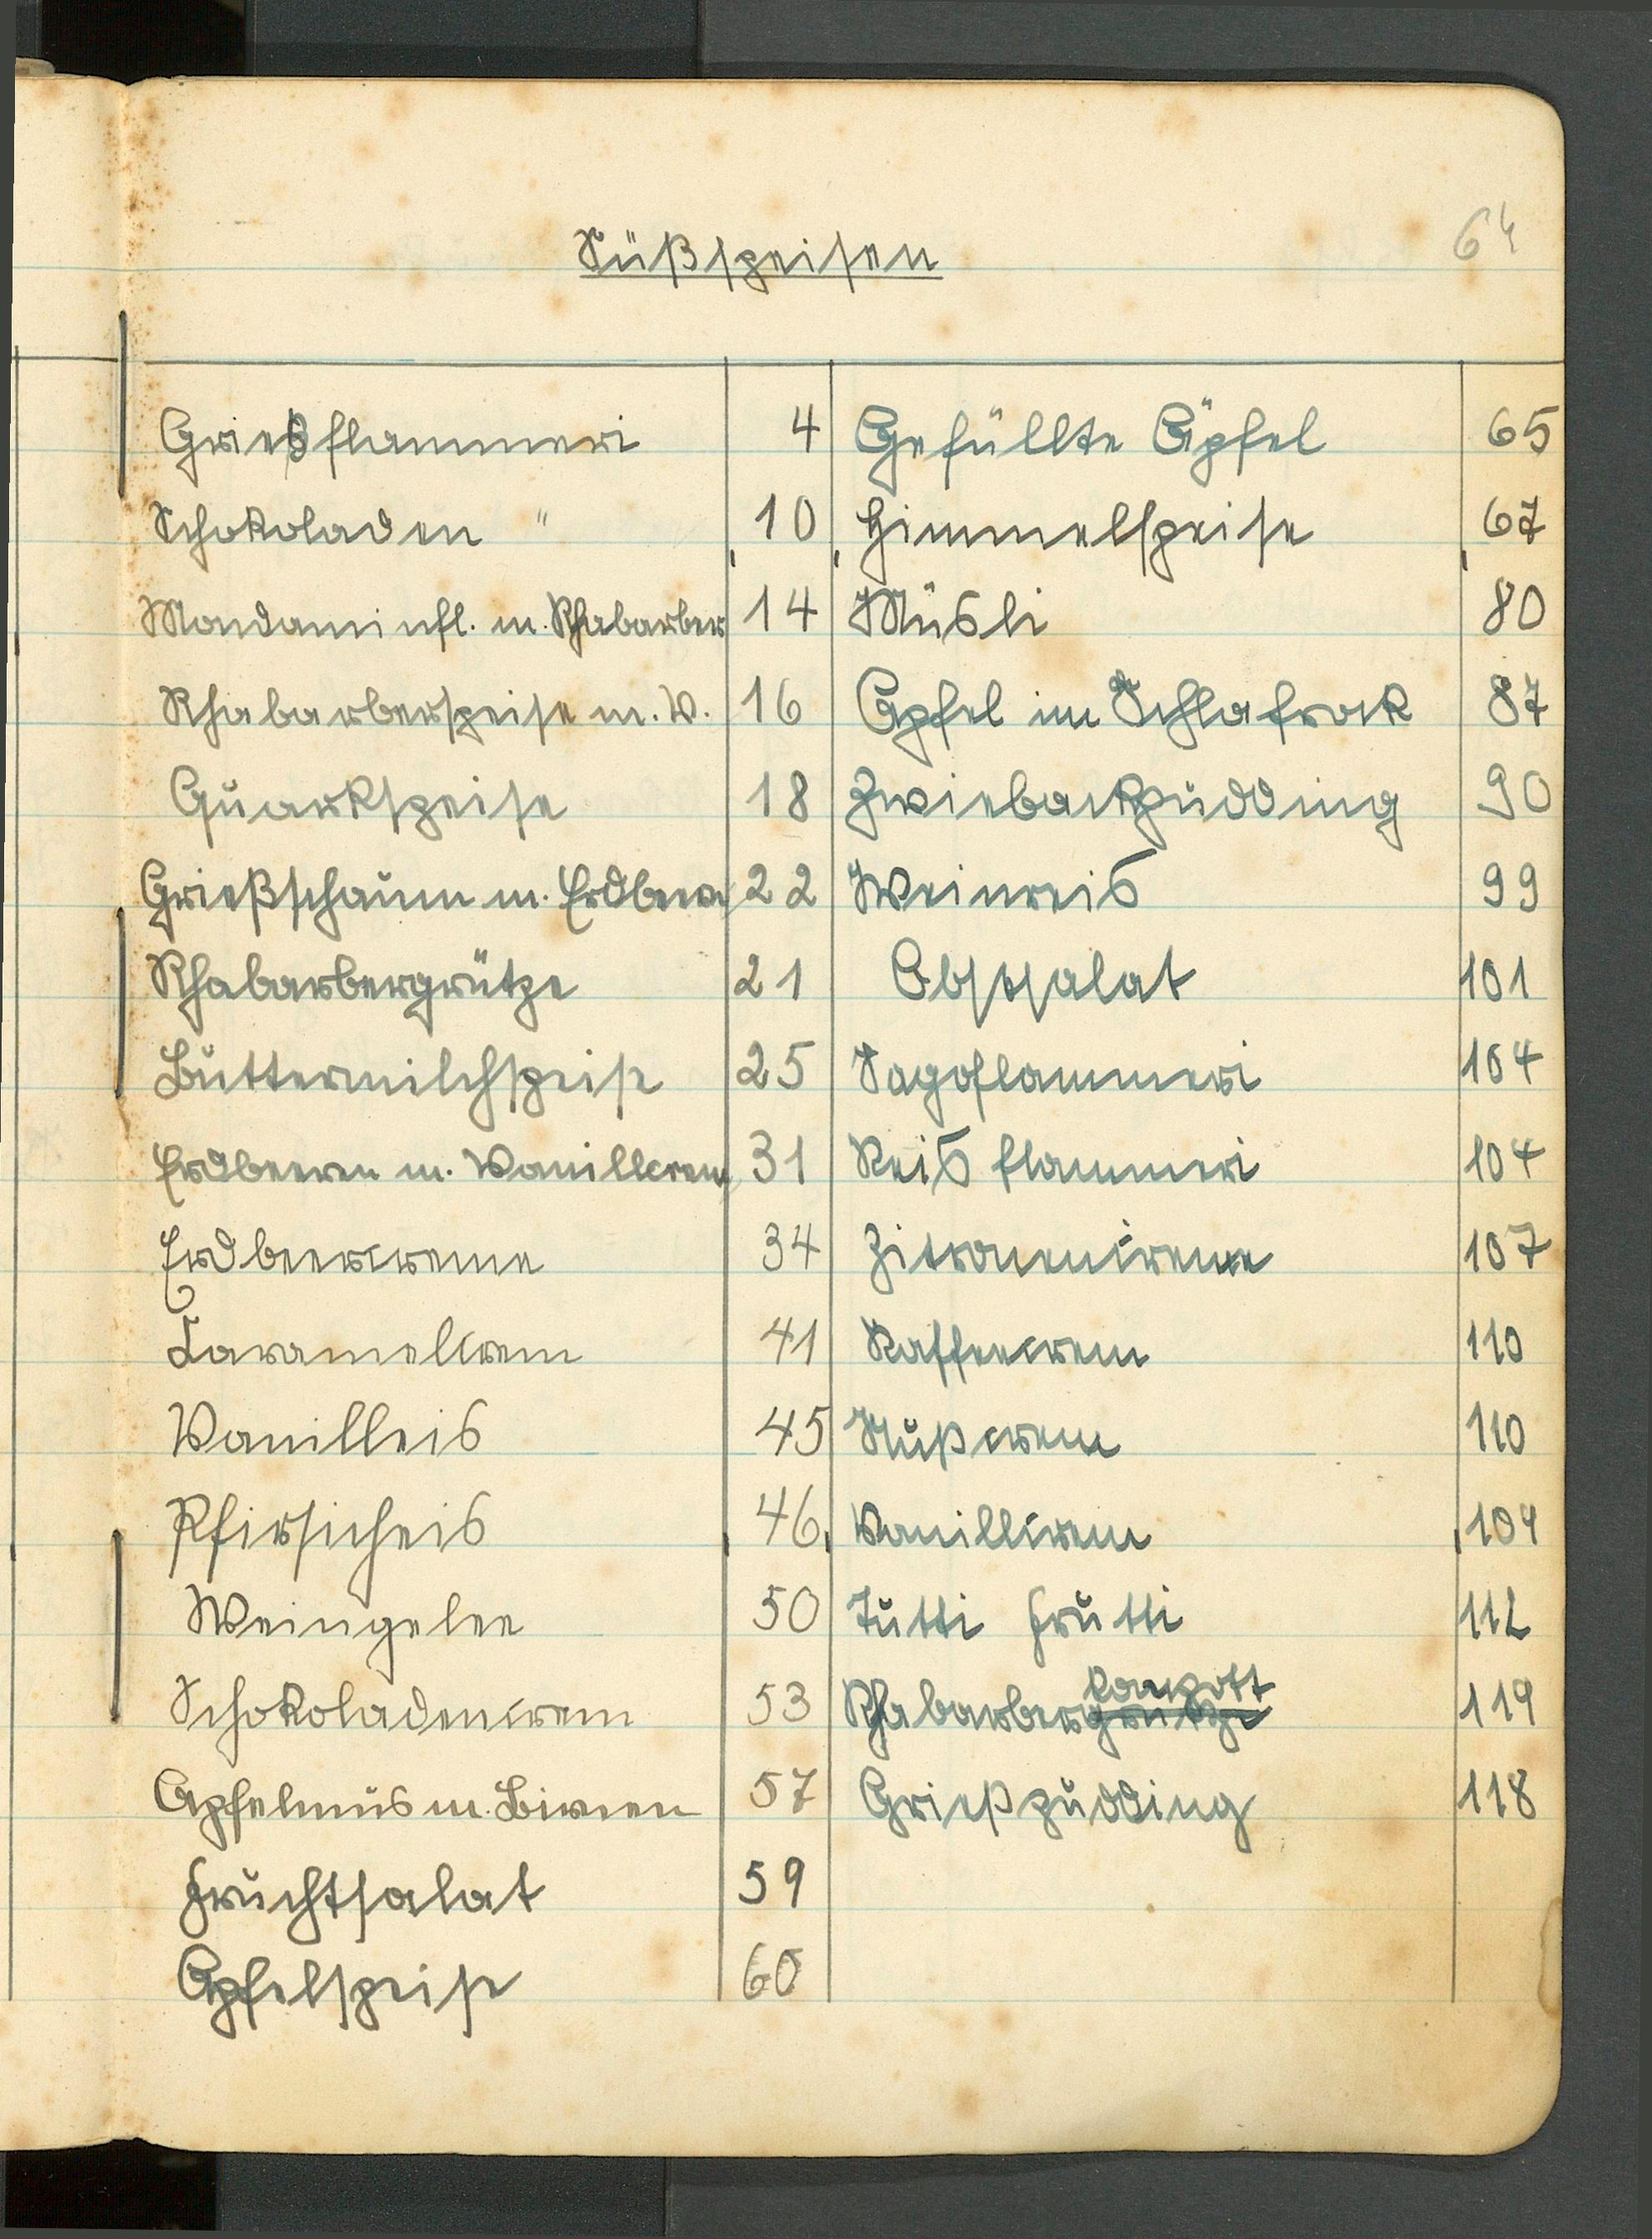 64
Süßspeisen
Griesflammeri 4
Schokoladen " 10
Mondaminfl. m. Rhabarber 14
Rhabarberspeise m. W. 16
Quarkspeise 18
Grießschaum m. Erdbeer 22
Rhabarbergrütze 21
Buttermilchspeise 25
Erdbeeren m. Vanillcrem 31
Erdbeercreme 34
Caramelcrem 41
Vanilleis 45
Pfirsicheis 46
Weingelee 50
Schokoladencrem 53
Apfelmus m. Birnen 57
Fruchtsalat 59
Apfelspeise 60
Gefüllte Äpfel 65
Himmelspeise 67
Müsli 80
Apfel im Schlafrock 87
Zwiebackpudding 90
Weinreis 99
Obstsalat 101
Sagoflammeri 104
Reisflammeri 104
Zitronencreme 107
Kaffeecrem 110
Nußcrem 110
Vanillcrem 104
Tutti Frutti 112
kompott
Rhabarbergrütze 119
Grießpudding 118